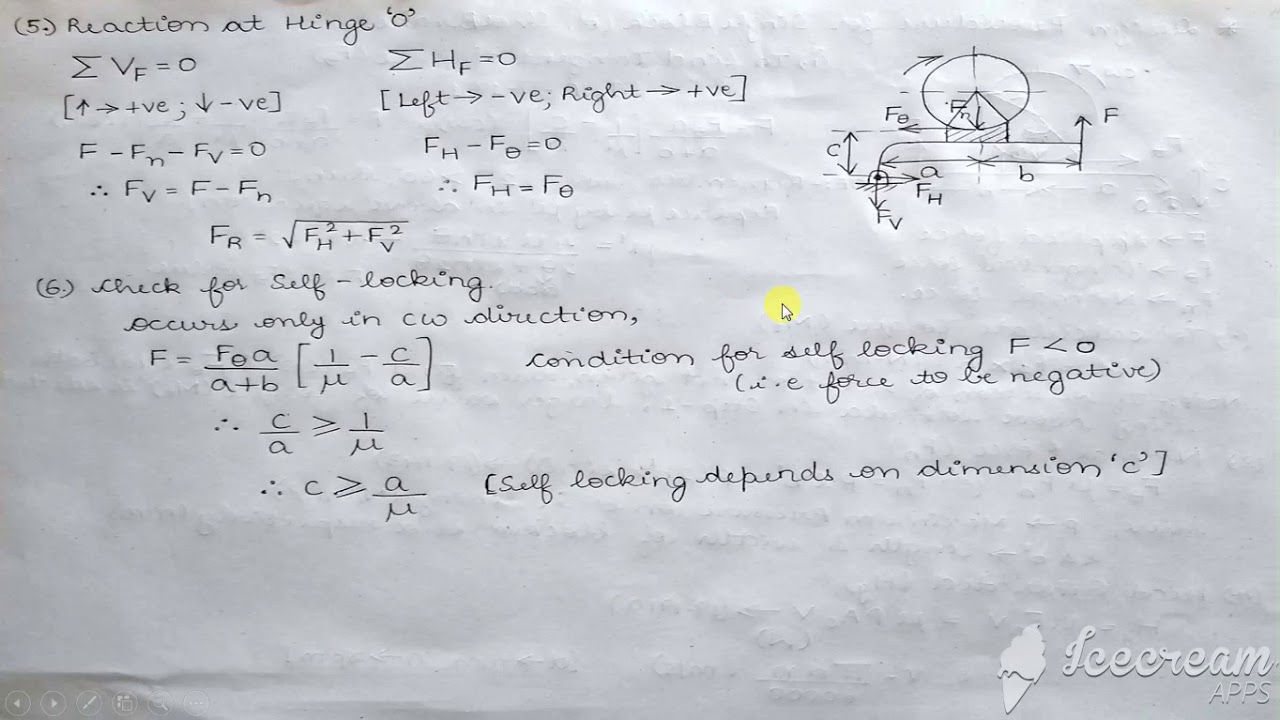 (5.) Reaction at Hinge 'O'
Σ V_F = 0
[↑→ +ve ; ↓ -ve]
F - Fn - F_V = 0
∴ F_V = F - Fn
Σ H_F = 0
[Left → -ve; Right → +ve]
F_H - Fθ = 0
∴ F_H = Fθ
F_R = √(F_H² + F_V²)
Fθ
Fn
F
C
a
b
F_H
F_V
(6.) Check for Self-locking.
occurs only in CW direction,
F = Fθ a / (a+b) [1/μ - c/a]
condition for self locking F < 0
(i.e force to be negative)
∴ c/a ≥ 1/μ
∴ c ≥ a/μ [Self locking depends on dimension 'c']
Icecream
APPS